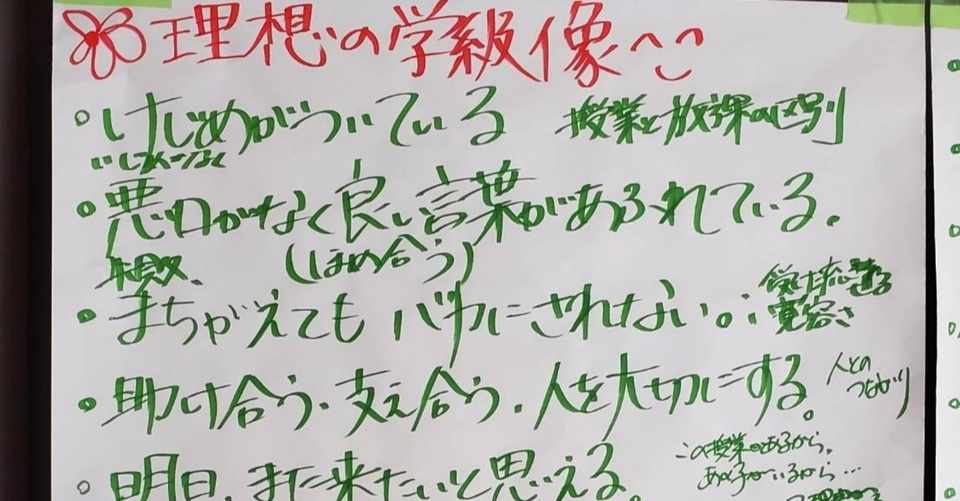 理想の学級像
・けじめがついている 授業と放課の区別
・悪口がなく良い言葉があふれている。
(ほめ合う)
・まちがえてもバカにされない。
寛容さ
・助け合う・支え合う・人を大切にする。
人との
つながり
・明日、また来たいと思える。
この授業があるから、
あの子がいるから…